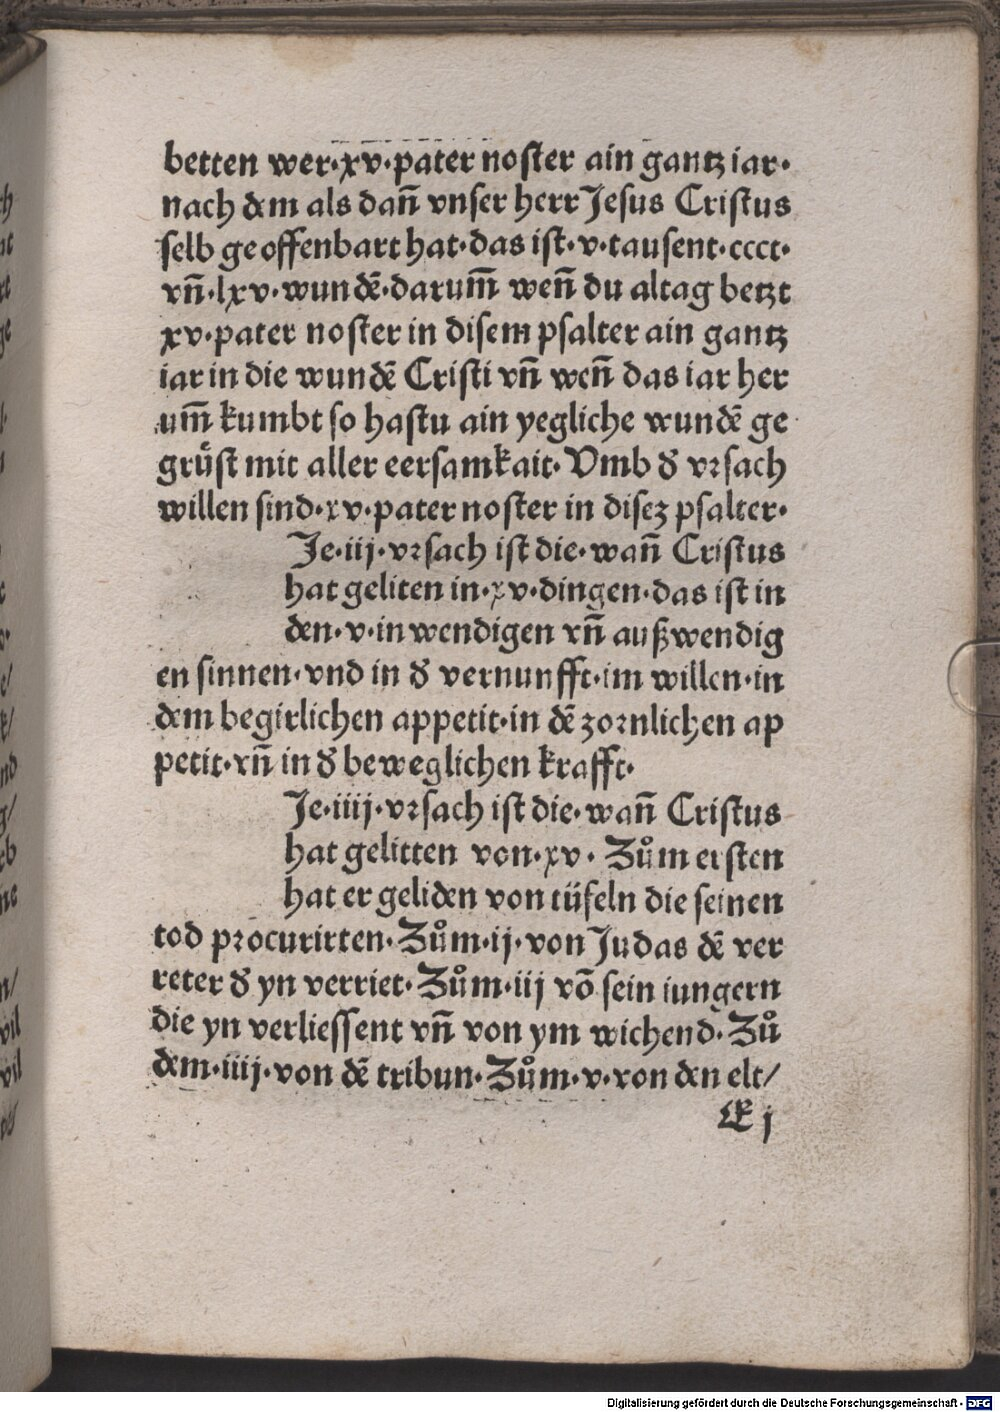 betten wer·xv·pater noster ain gantz iar·
nach dem als dañ vnser herr Jesus Cristus
selb geoffenbart hat·das ist·v·tausent·cccc·
vñ·lxv·wundē·darum̄ wen̄ du altag betzt
xv·pater noster in disem psalter ain gantz
iar in die wundē Cristi vñ wen̄ das iar her
um̄ kumbt so hastu ain yegliche wundē ge
grüst mit aller eersamkait·Vmb đ vrsach
willen sind·xv·pater noster in disez psalter·
Je·iij·vrsach ist die·wan̄ Cristus
hat geliten in·xv·dingen·das ist in
den·v·inwendigen vñ außwendig
en sinnen·vnd in đ vernunfft·im willen·in
dem begirlichen appetit·in dē zornlichen ap
petit·vñ in đ beweglichen krafft·
Je·iiij·vrsach ist die·wan̄ Cristus
hat gelitten von·xv· Zům ersten
hat er geliden von tüfeln die seinen
tod procurirten·Zům·ij·von Judas dē ver
reter đ yn verriet·Zům·iij vō sein iungern
die yn verliessent vñ von ym wichend·Zů
dem·iiij·von dē tribun·Zům·v·von den elt/
j
Digitalisierung gefördert durch die Deutsche Forschungsgemeinschaft - DFG